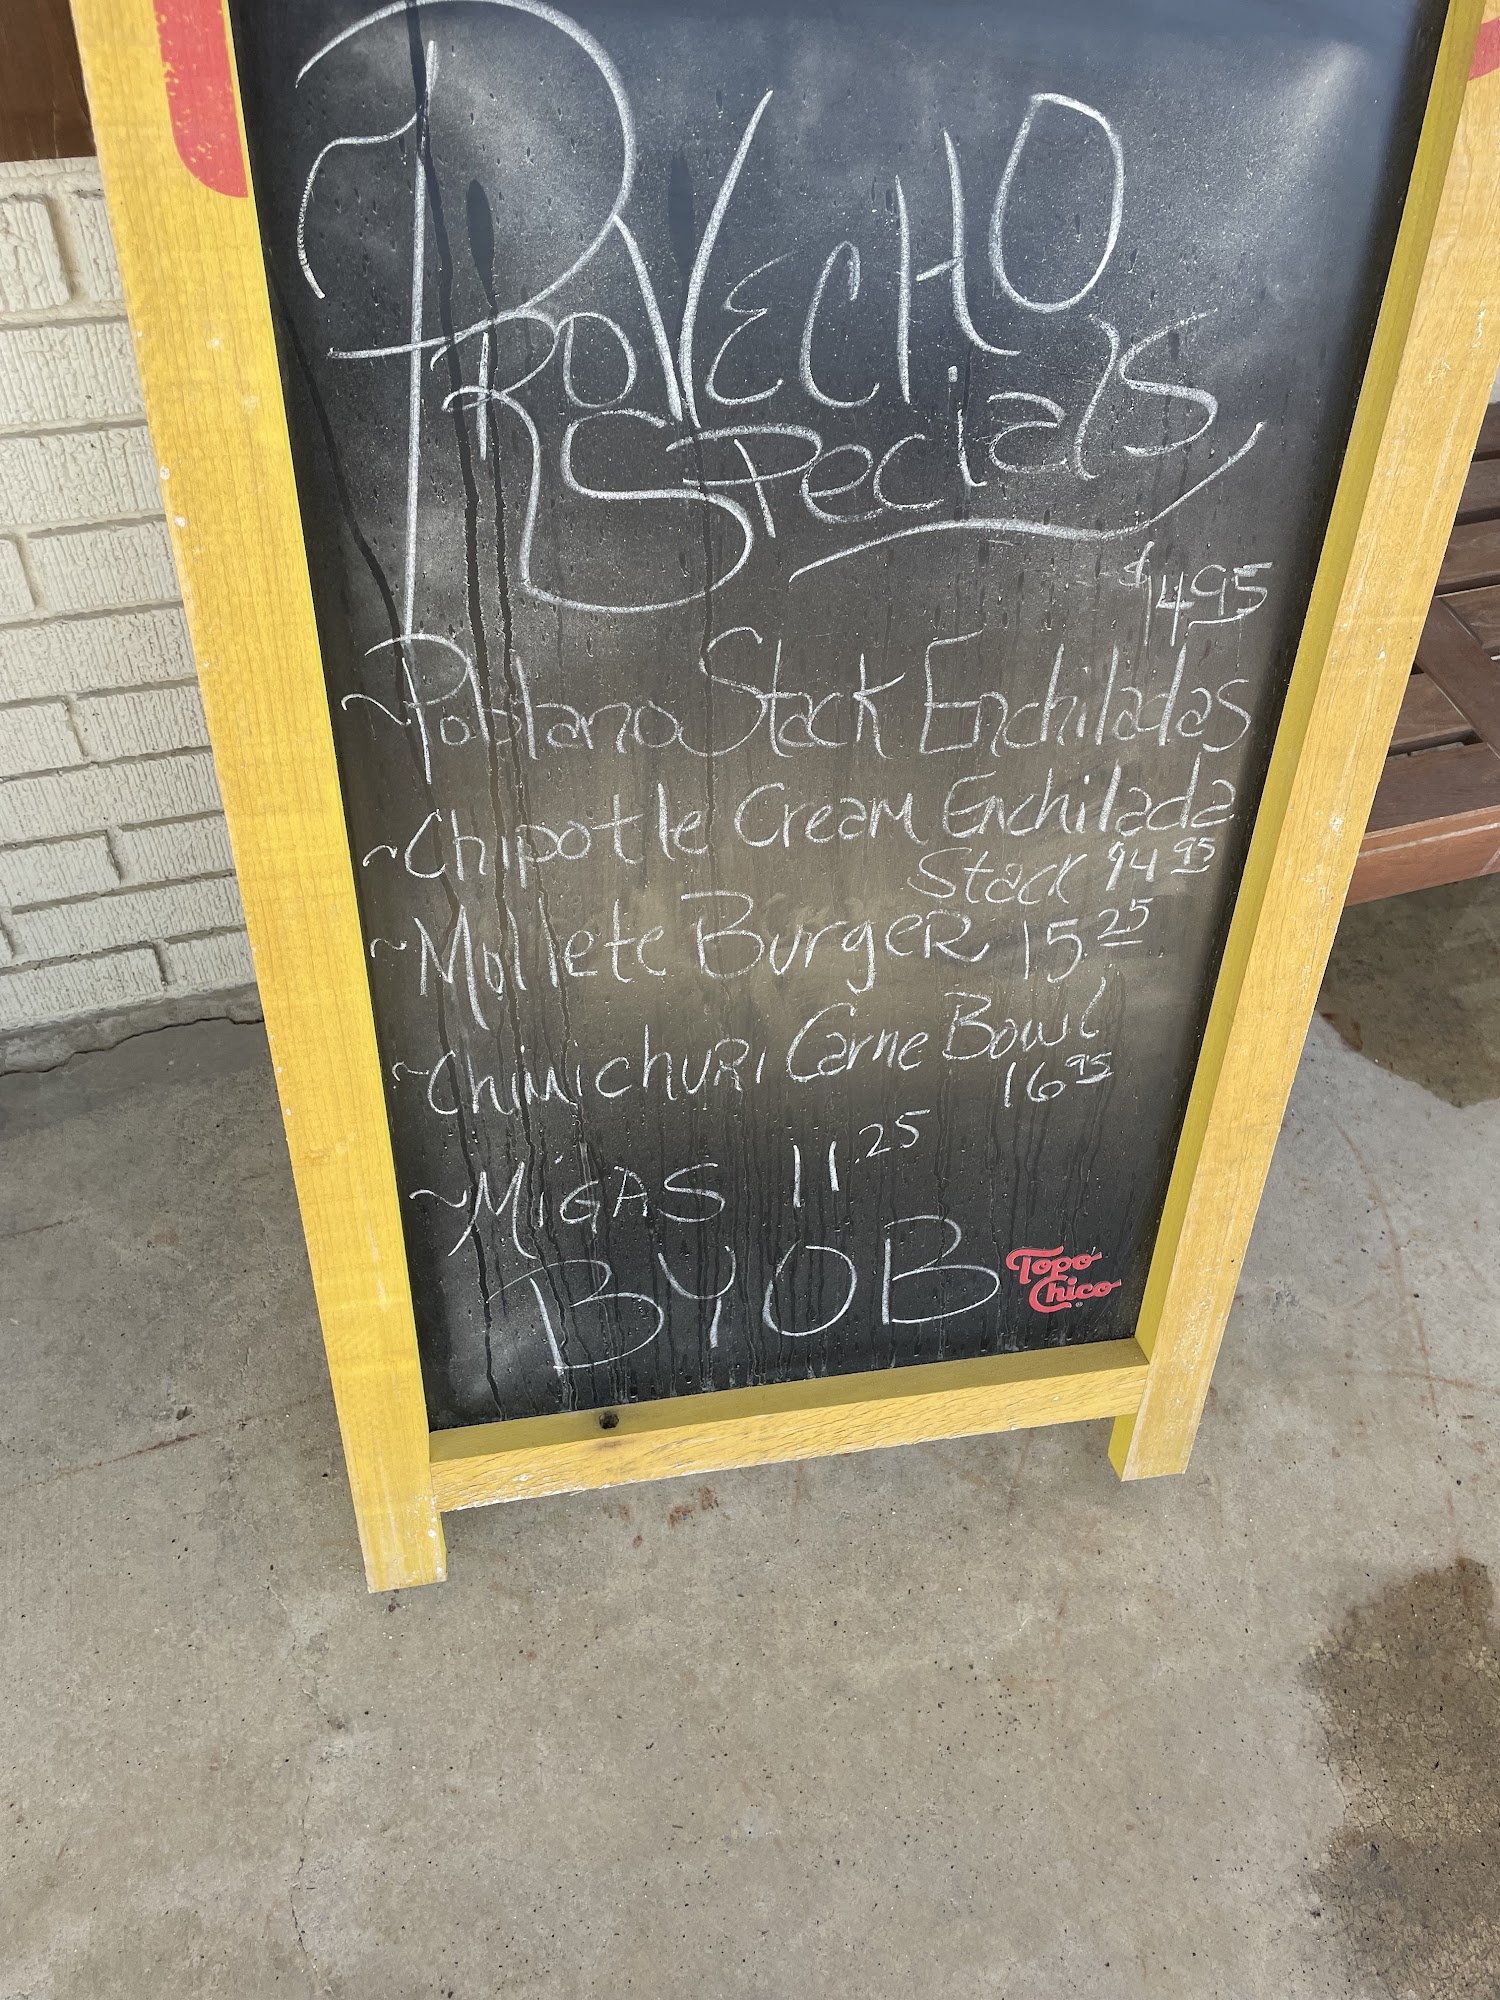 PROVECHO
Specials
$14.95
~Poblano Stack Enchiladas
~Chipotle Cream Enchilada
Stack $14.95
~Mollete Burger 15.25
~Chimichurri Carne Bowl
16.95
~MiGAS 11.25
BYOB
Topo
Chico®